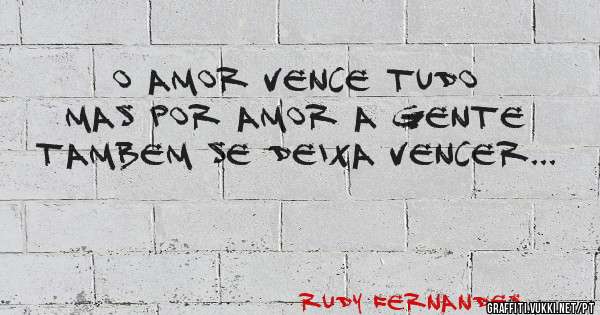 O AMOR VENCE TUDO
MAS POR AMOR A GENTE
TAMBEM SE DEIXA VENCER...
RUDY FERNANDES
GRAFFITI.VUKKI.NET/PT